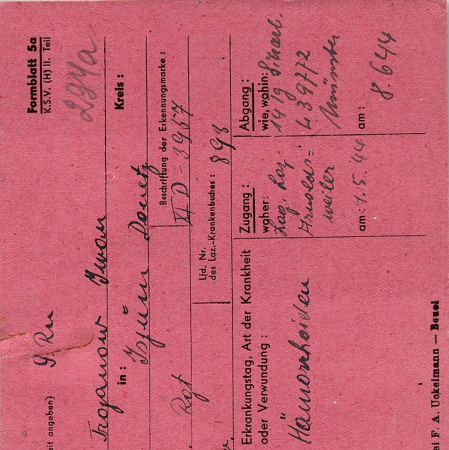 Formblatt 5a
K.S.V. (H) II. Teil
294a
(mit angeben) S. Ru
Trojanow Iwan
Kreis:
in: Isjum Donetz
Beschriftung der Erkennungsmarke:
VI D - 3957
Rgt
Lfd. Nr.
des Laz.-Krankenbuches: 893
Erkrankungstag, Art der Krankheit
oder Verwundung:
Hämorrhoiden
Zugang:
woher:
Laz.
Arnolds-
weiler
am: 1.5.44
Abgang:
wie, wohin:
439772
Münster
am: 8.6.44
ei F. A. Uokelmann — Beuel